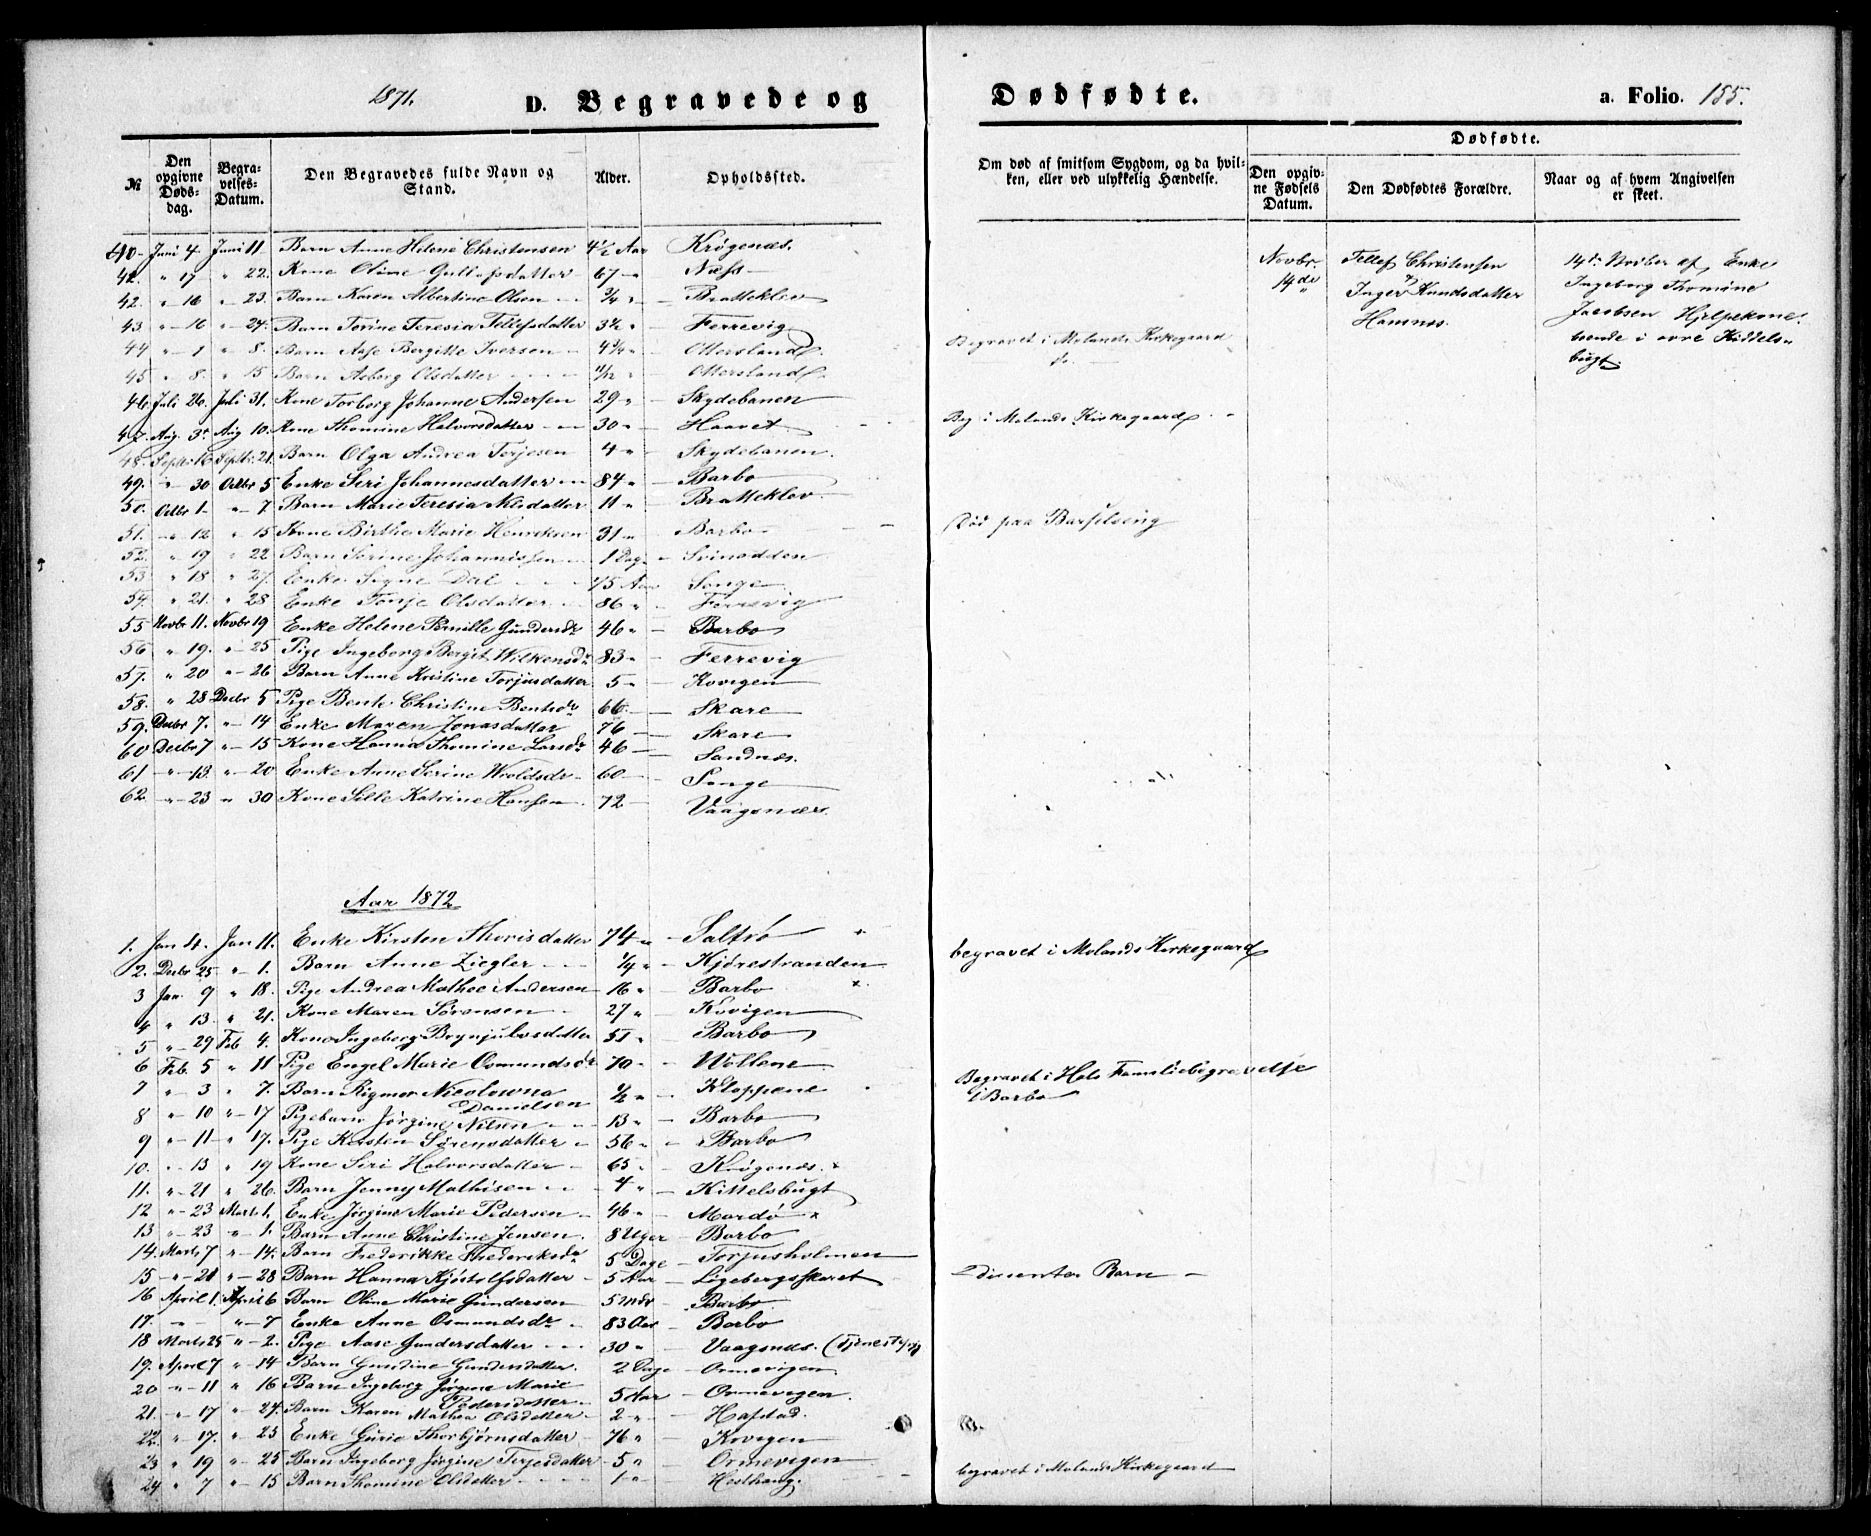 1871.
D. Begravede og Dødfødte. a. Folio. 155.
№
Den opgivne Døds-dag.
Begra-velses-Datum.
Den Begravedes fulde Navn og Stand.
Alder.
Opholdssted.
Om død af smitsom Sygdom, og da hvil-ken, eller ved ulykkelig Hændelse.
Dødfødte.
Den opgiv-ne Fødsels Datum.
Den Dødfødtes Forældre.
Naar og af hvem Angivelsen er skeet.
40 Juni 4 Juni 11 Barn Anne Helene Christensen 4½ Aar Krøgenæs.
42. " 17 " 22. Kone Oline Gullefsdatter 67 " Næss
42. " 16 " 23. Barn Karen Albertine Olsen ¾ " Bratteklev
43 " 16 " 24. Barn Torine Teresia Tellefsdatter 3½ " Ferrevig
44 " 1 " 8. Barn Aase Bergitte Iversen 4¼ " Ottersland Begravet i Molands Kirkegaard
45 " 8. " 15 Barn Asborg Olsdatter 11/12 " Ottersland do
46 Juli 26. Juli 31. Kone Torborg Johanne Andersen 29 " Skydebanen
47. Aug. 3 Aug 10. Kone Thomine Halvorsdatter 30 " Haavet Beg i Molands Kirkegaard
48. Septr. 16 Septr. 21. Barn Olga Andrea Terjesen 4 " Skydebanen.
49. " 30 Octbr 5 Enke Seri Johannesdatter 84 " Barbo
50. Octbr 1. " 7 Barn Marie Teresia Nilsdatter 11 " Bratteklev
51. " 12 " 15 Kone Birthe Marie Henriksen 31 " Barbo Død paa Barselseng
52. " 19 " 22 Barn Serine Johannissen 1 Dag Svinodden
53 " 18 " 27. Enke Signe Dal 75 Aar Songe
54. " 21. " 28 Enke Tonje Olsdatter 86 " Ferrevig
55 Novbr 11. Novbr 19 Enke Helene Pernille Gundersdr 46 " Barbo
56 " 19. " 25 Pige Ingeborg Bergit Wilkensdr 83 " Ferrevig
57. " 20 " 26 Barn Anne Kristine Torjusdatter 5 " Kovigen
58. " 28 Decbr 5 Pige Bente Christine Bentsdr 66 Skare
59. Decbr 7. " 14 Enke Maren Jonasdatter 76 Skare
60 Decbr 7 " 15 Kone Hanna Thomine Larsdr 46 Sandnæs.
61 " 13. " 20 Enke Anne Serine Wroldsdr 60 Songe
62 " 23 " 30 Kone Sille Katrine Hansen 72 Vaagsnæs.
Novbr. 14de
Tellef Christensen
& Inger Knudsdatter
Hamnes.
14de Novber af Enke
Ingeborg Thomine
Jacobsen Hjelpekone
boende i øvre Kiddels-
bugt
Aar 1872
1. Jan 4. Jan 11. Enke Kirsten Thorisdatter 74 " Saltrø begravet i Molands Kirkegaard
2. Decbr 25 " 1. Barn Anne Ziegler ¼ " Kjørestranden
3 Jan. 9 " 18. Pige Andrea Mathee Andersen 16 " Barbo
4 " 13. " 21. Kone Maren Sørensen 27 " Kovigen
5 " 29 Feb 4. Kone Ingeborg Brynjulvsdatter 51 " Barbo
6 Feb. 5 " 11 Pige Engel Marie Osmundsdr 70 " Wollene
7 " 3 " 7. Barn Rigmor Nicolowna Danielsen ½ " Kloppene Begravet i Hels Familiebegravelse i Barbo
8 " 10 " 17 Pigebarn Jørgine Nilsen 13 " Barbo
9 " 11 " 17. Pige Kirsten Sørensdatter 56 " Barbo
10. " 13 " 19 Kone Seri Halvorsdatter 65 " Krøgenæs.
11. " 21 " 26. Barn Jenny Mathisen 4 " Kittelsbugt
12 " 23 Marts 1. Enke Jørgine Marie Pedersen 46 " Mardø
13 " 23 " 1. Barn Anne Christine Jensen. 8 Uger Barbo
14. Marts 7 " 14. Barn Frederikke Frederiksdr 5 Dage Torjusholmen
15 " 21 " 28 Barn Hanna Kjøstolfsdatter 5 Aar Ligebergsskaret Dissenter Barn
16 April 1. April 6 Barn Oline Marie Gundersen 5 Mdr Barbo
17. " " 7 Enke Anne Osmundsdr 83 Aar Barbo
18 Marts 25 " 2. Pige Aase Gundersdatter 30 " Vaagsnæs. (Tjenestepige)
19. April 7 " 14 Barn Gundine Gundersdatter. 2 Dage Ormevigen
20 " 11 " 16 Barn Ingeborg Jørgine Marie Pedersdatter 5 Aar Ormevigen
21. " 17 " 24. Barn Karen Mathea Olsdatter 2 " Hafstad.
22. " 17. " 23 Enke Gurie Thorbjørnsdatter 76 " Kovigen
23 " 19 " 25 Barn Ingeborg Jørgine Terjesdatter 5 " Ormevigen
24 " 7 " 15 Barn Thomine Olsdatter 1 " Hesthag. begravet i Molands Kirkegaard